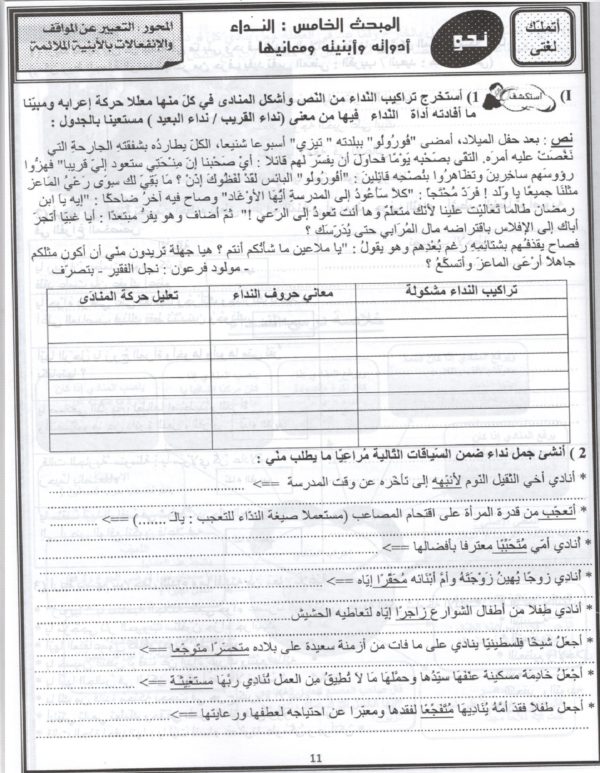 أتملك
لغتي
نحو
المبحث الخامس : النداء
أدواته وأبنيته ومعانيها
المحور : التعبير عن المواقف
والإنفعالات بالأبنية الملائمة
I) أستكشف 1) أستخرج تراكيب النداء من النص وأشكل المنادى في كلّ منها معللا حركة إعرابه ومبيّنا
ما أفادته أداة النداء فيها من معنى (نداء القريب / نداء البعيد ) مستعينا بالجدول :
نص : بعد حفل الميلاد، أمضى "فُورُولُو" ببلدته " تيزي" أسبوعا شنيعا، الكلّ يطاردُه بشفقتهِ الجارحةِ التي
نغّصتْ عليه أمرَه. التقى بصَحْبِه يَوْمًا فحاول أن يفسّرَ لهم قائلا : أيْ صَحْبَنا إنّ مِنْحَتِي ستعود إلي قريبا" فهزُّوا
رؤوسهم ساخرين وتظاهرُوا بنُصحِه قائلين : "أفُورُولُو" البائس لقدْ لفظوك إذن ؟ ما بَقِيَ لك سِوَى رعْيِ الماعز
مثلنا جميعًا يا ولَد ! فردّ مُحْتَجًّا : "كلّا سَأعُودُ إلى المدرسة أيّها الأوْغَاد" وصاح فيه آخر ضاحكًا : "إيه يا ابن
رمضان طالما تعَاليْت علينا لأنك متعلّم وها أنت تعودُ إلى الرّعْي !" ثمّ أضاف وهو يفرّ مبتعدًا : أيا غبيًّا أتجرّ
أباك إلى الإفلاس باقتراضه مال المُرَابي حتى يُدَرّسَك ؟
فصاح يقذفُهم بشتائِمه رغم بُعْدِهم وهو يقولُ : "يا ملاعين ما شأنُكم أنتم ؟ هيا جهلة تريدون منّي أن أكون مثلكم
جاهلا أرْعَى الماعزَ وأتسكّعُ ؟
- مولود فرعون : نجل الفقير - بتصرّف
تراكيب النداء مشكولة
معاني حروف النداء
تعليل حركة المنادَى
2 ) أنشئ جمل نداء ضمن السّياقات التّالية مُراعيًا ما يطلب منّي :
* أنادي أخي الثقيل النوم لأنبّهه إلى تأخّره عن وقت المدرسة ==>
* أتعجّب من قدرة المرأة على اقتحام المصاعب (مستعملا صيغة الندّاء للتعجب : يالـ .......) ==>
* أنادي أمّي مُتَحَبّبًا معترفا بأفضالها ==>
* أنادي زوجًا يُهينُ زوْجَتَهُ وأمَّ أبْنَائه مُحقّرًا إيّاه ==>
* أنادي طفلا من أطفال الشوارع زاجرًا إيّاه لتعاطيه الحشيش
* أجعلُ شيخًا فلسطينيًّا ينادي على ما فات من أزمنة سعيدة على بلاده متحسّرًا متوجّعا ==>
* أجْعلُ خادِمة مسكينة عنّفها سيّدُها وحمّلها مَا لا تُطِيقُ مِن العمل تُنَادِي ربّها مستغيثة ==>
* أجعل طفلا فقدَ أمّهُ يُنَادِيهَا مُتَفَجّعًا لفقدها ومعبّرا عن احتياجه لعطفها ورعايتها ==>
11